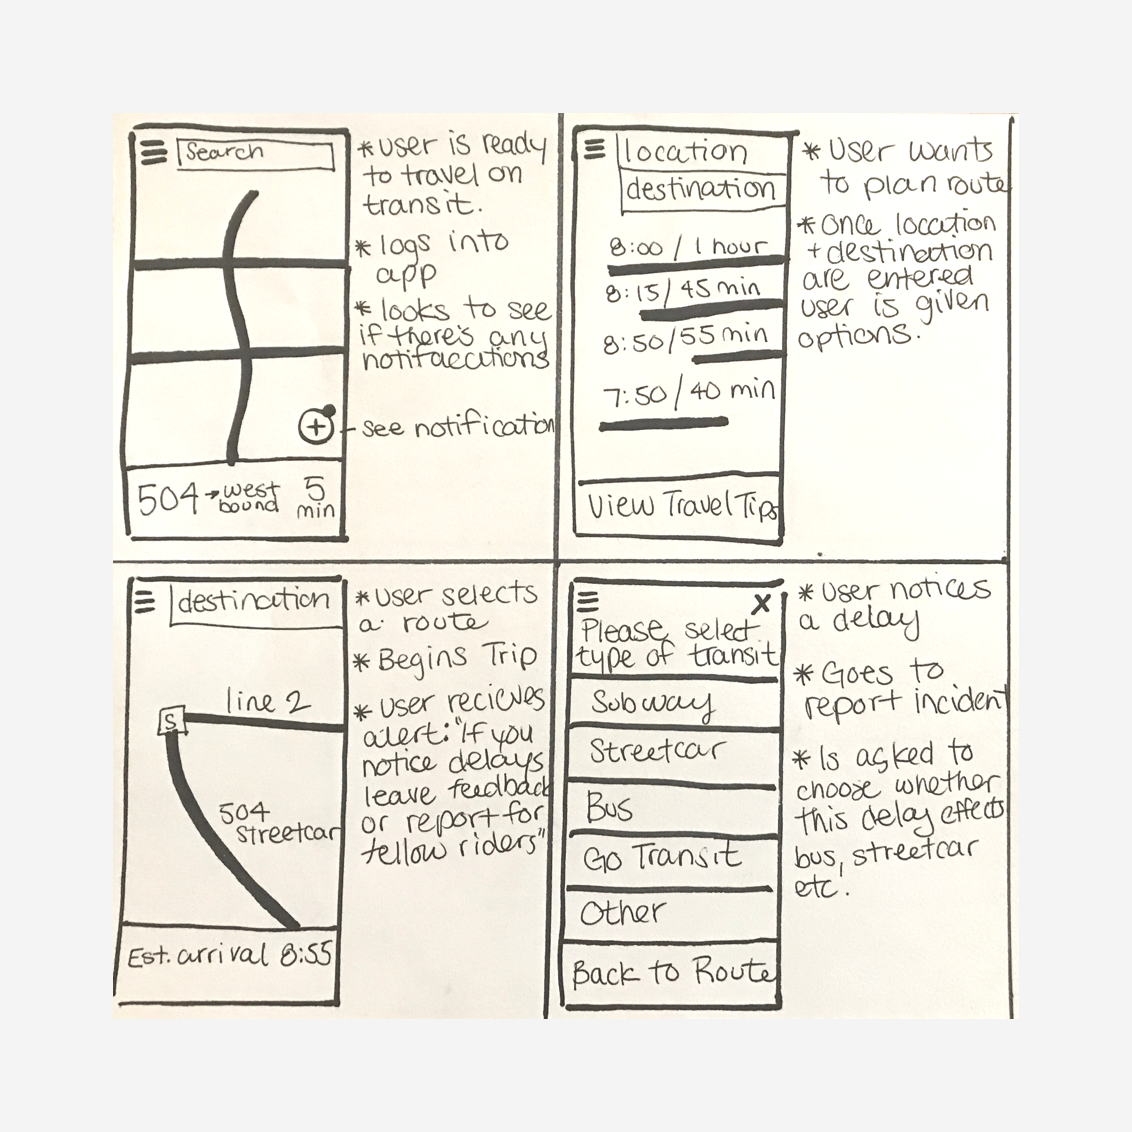 Search
504 → west bound 5 min
* User is ready
to travel on
transit.
* logs into
app
* looks to see
if there's any
notifaecations
see notification
location
destination
8:00 / 1 hour
8:15 / 45 min
8:50 / 55 min
7:50 / 40 min
View Travel Tips
* User wants
to plan route
* Once location
+ destination
are entered
user is given
options.
destination
line 2
S
504
Streetcar
Est. arrival 8:55
* User selects
a route
* Begins Trip
* User recieves
alert: "If you
notice delays
leave feedback
or report for
fellow riders"
X
Please select
type of transit
Subway
Streetcar
Bus
Go Transit
Other
Back to Route
* User notices
a delay
* Goes to
report incident
* Is asked to
choose whether
this delay effects
bus, streetcar
etc.